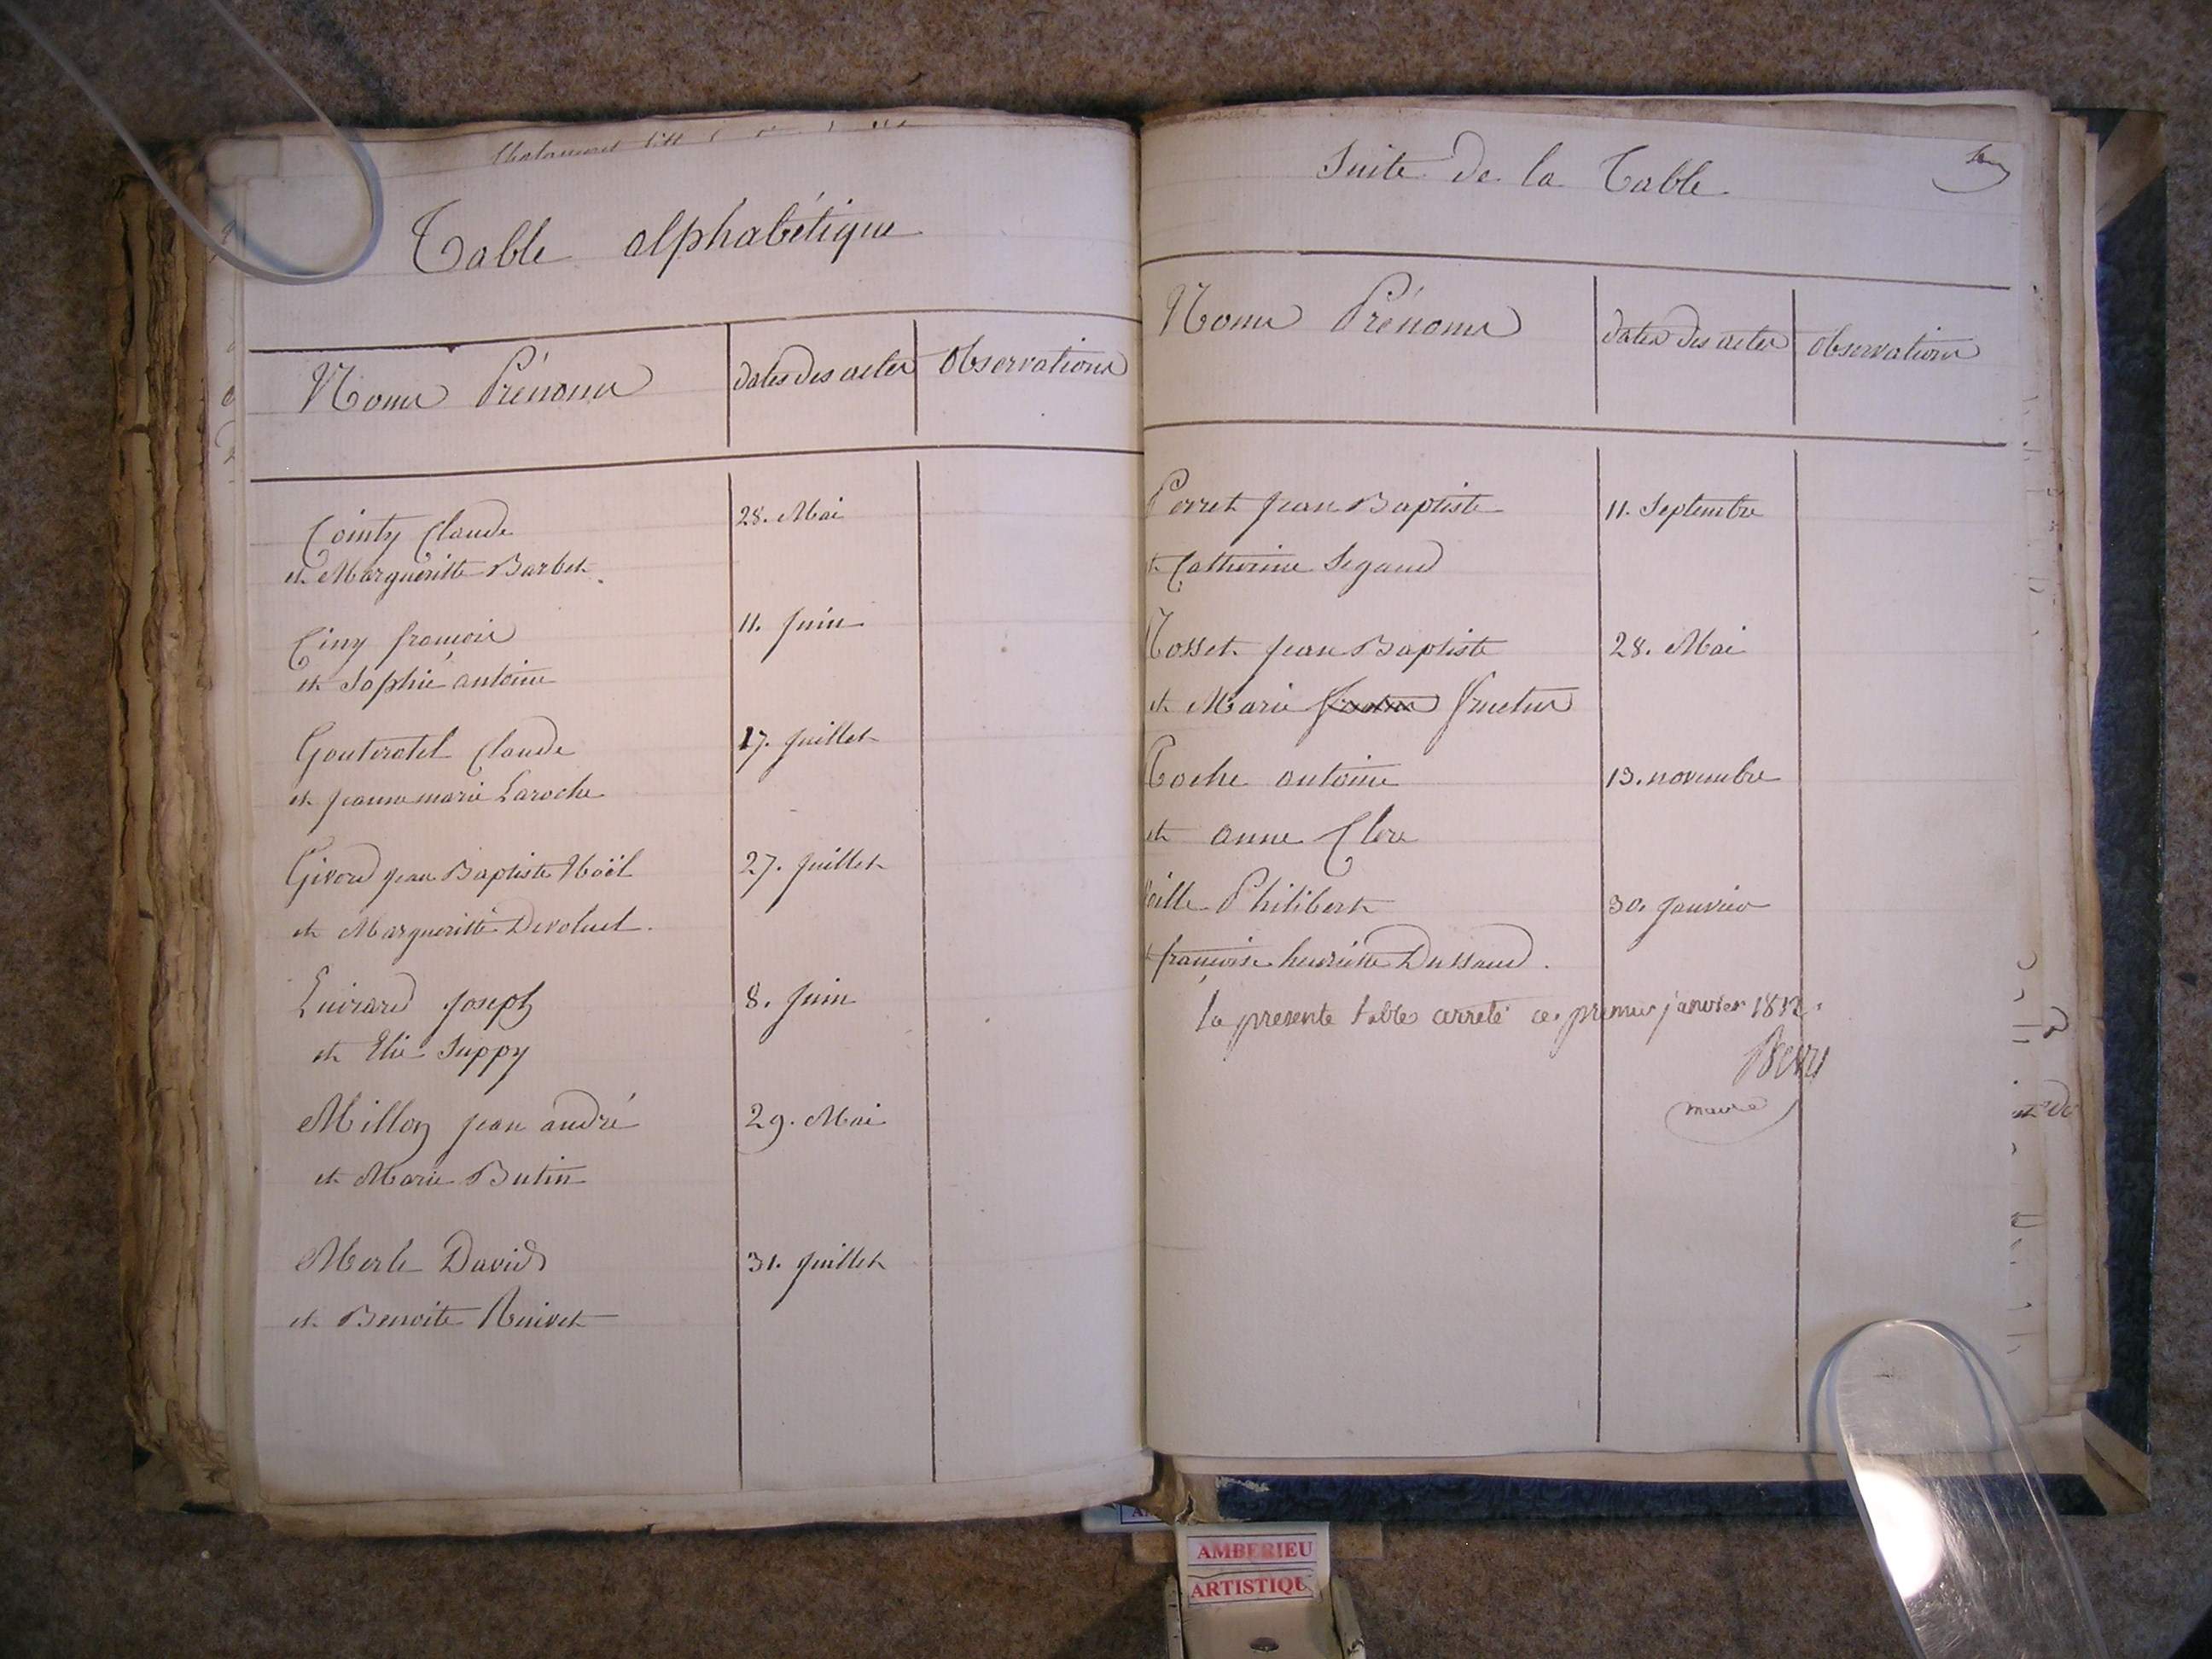 Table alphabétique
Noms Prénoms
dates des actes
Observations
Cointy Claude
28. Mai
et Margueritte Barbet
Ciny françois
11. Juin
et Sophie antoine
Gouteratel Claude
17. Juillet
et jeanne marie Laroche
Givord jean Baptiste Noël
27. Juillet
et Margueritte Devoluet.
Luirard Joseph
8. Juin
et Elie Suppy
Millon jean andré
29. Mai
et Marie Butin
Merle David
31. Juillet
et Benoite Nuivet
Suite de la Table
Noms Prénoms
dates des actes
Observations
Perret jean Baptiste
11. Septembre
Catherine Segaud
Rosset jean Baptiste
28. Mai
et Marie fructus
Roche antoine
13. novembre
et anne Clere
Philibert
30. Janvier
françoise henriette Dussaud.
la presente table arreté ce premier janvier 1812.
maire
AMBERIEU
ARTISTIQU